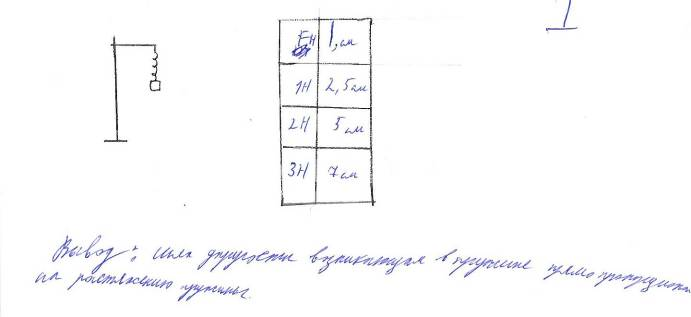 Fн l, см
1Н 2,5 см
2Н 5 см
3Н 7 см
Вывод: сила упругости возникающая в пружине прямо пропорцион
на растяжению пружины.